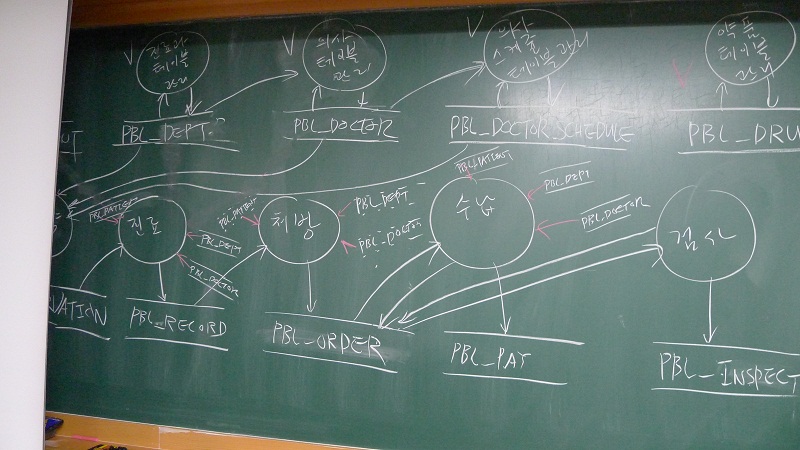 V
진료과
테이블
관리
V
의사
테이블
관리
V
의사
스케줄
테이블 관리
약품
테이블
관리
V
PBL_DEPT
PBL_DOCTOR
PBL_DOCTOR_SCHEDULE
PBL_DRU
PBL_PATIENT
진료
PBL_DEPT
PBL_DOCTOR
PBL_PATIENT
처방
PBL_DEPT
PBL_DOCTOR
PBL_PATIENT
수납
PBL_DEPT
PBL_DOCTOR
검사
VATION
PBL_RECORD
PBL_ORDER
PBL_PAY
PBL_INSPECT